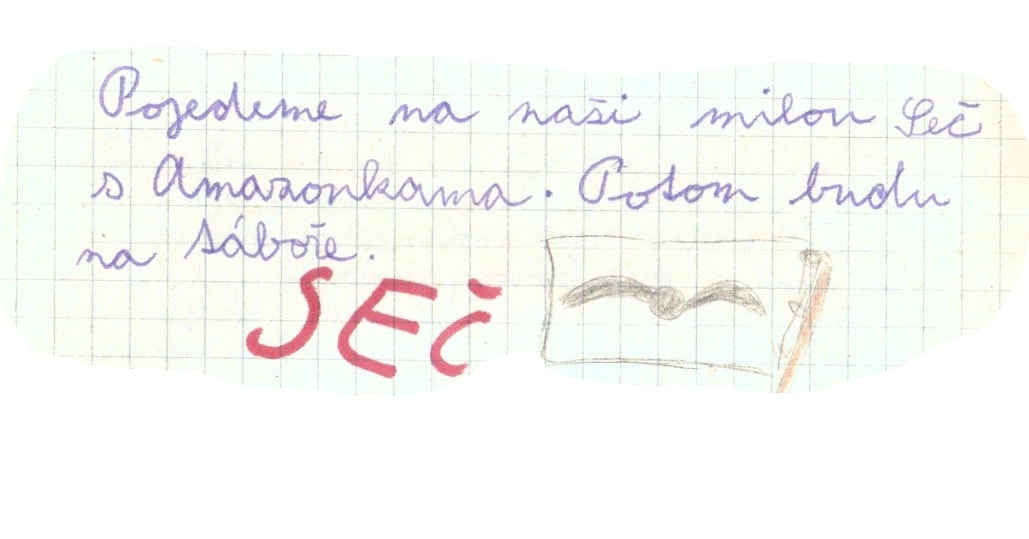 Pojedeme na naši milou Seč
s Amazonkama. Potom budu
na táboře.
SEČ